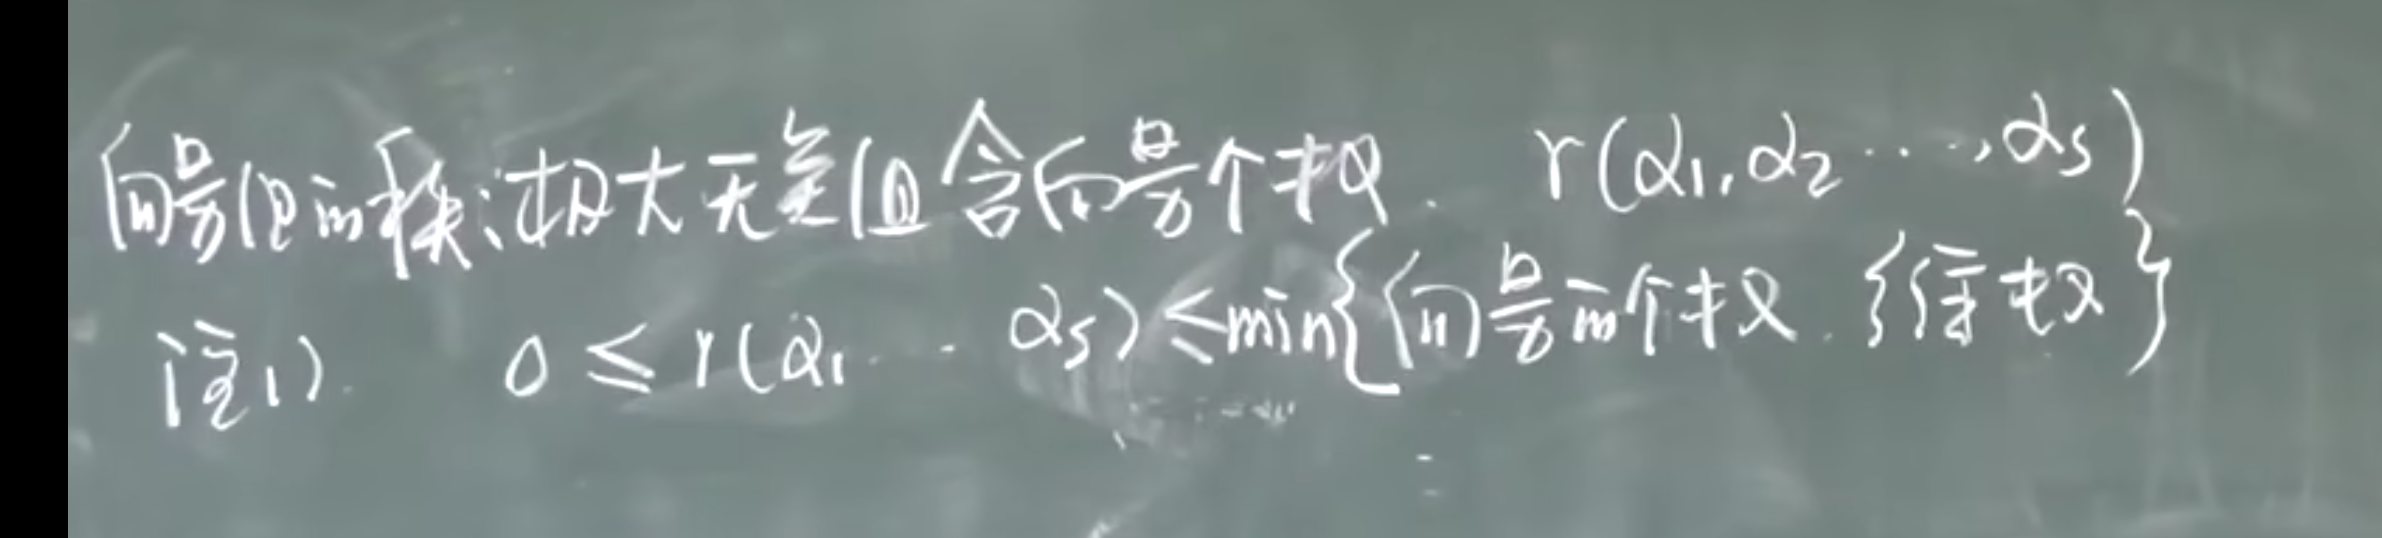 向量组的秩:极大无关组含向量个数. r(α₁,α₂…,αs)
注1). 0≤r(α₁…αs)≤min{向量的个数.维数}